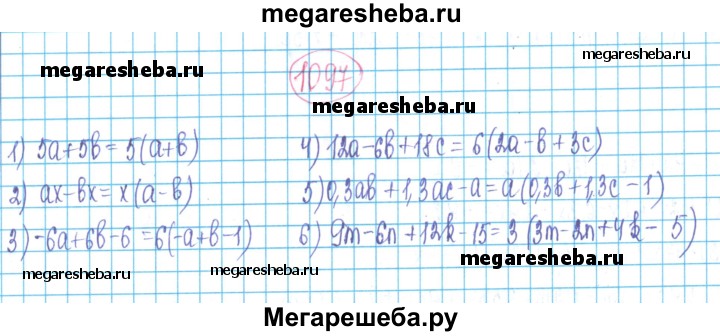 megaresheba.ru
megaresheba.ru
megaresheba.ru
1097
megaresheba.ru
1) 5a+5b = 5(a+b)
2) ax-bx = x(a-b)
3) -6a+6b-6 = 6(-a+b-1)
4) 12a-6b+18c = 6(2a-b+3c)
5) 0,3ab+1,3ac-a = a(0,3b+1,3c-1)
6) 9m-6n+12k-15 = 3(3m-2n+4k-5)
megaresheba.ru
megaresheba.ru
megaresheba.ru
Мегарешеба.ру